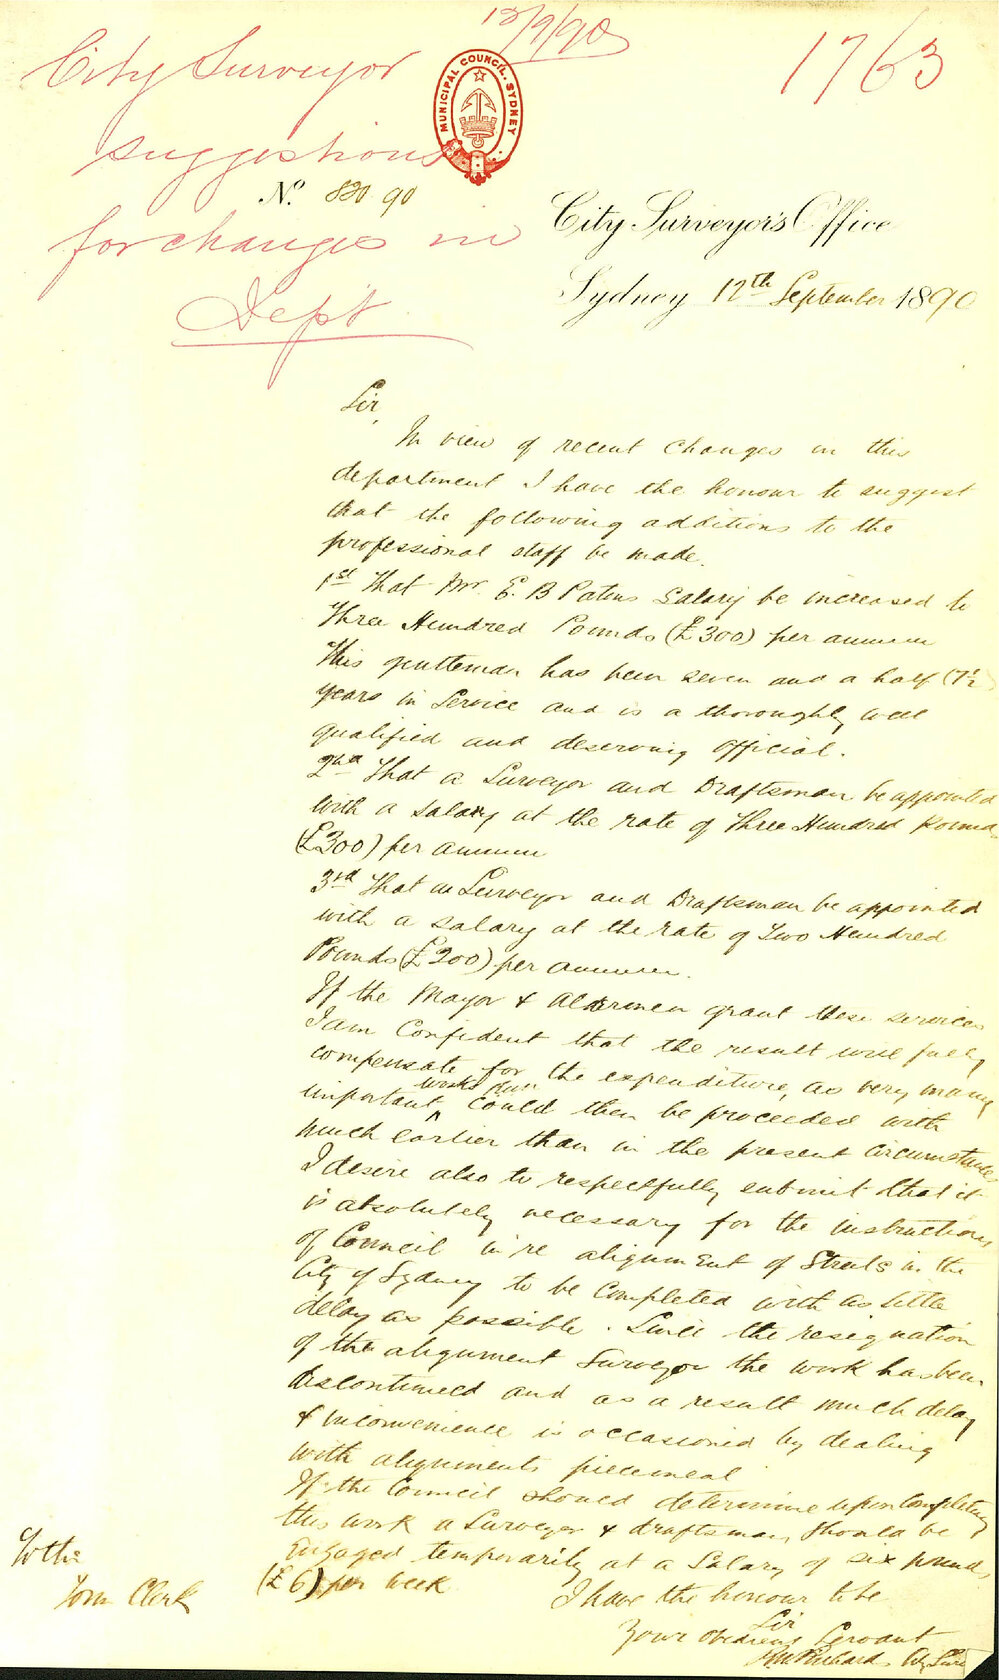 12/9/90
1763
City Surveyor
suggestions
for changes in
Dept
MUNICIPAL COUNCIL. SYDNEY
No. 820 90
City Surveyor's Office
Sydney 12th September 1890
Sir,
In view of recent changes in this
department I have the honour to suggest
that the following additions to the
professional staff be made.
1st That Mr. E. B Patens Salary be increased to
Three Hundred Pounds (£300) per annum
This gentleman has been seven and a half (7½)
years in Service and is a thoroughly well
qualified and deserving official.
2nd That a Surveyor and Draftsman be appointed
with a salary at the rate of Three Hundred Pounds
(£300) per annum
3rd That a Surveyor and Draftsman be appointed
with a salary at the rate of Two Hundred
Pounds (£200) per annum.
If the Mayor & Aldermen grant these services
I am confident that the result will fully
compensate for the expenditure, as very many
important works could then be proceeded with
much earlier than in the present circumstances
I desire also to respectfully submit that it
is absolutely necessary for the instructions
of Council in re alignment of Streets in the
City of Sydney to be completed with as little
delay as possible. Since the resignation
of the alignment Surveyor the work has been
discontinued and as a result much delay
& inconvenience is occasioned by dealing
with alignments piecemeal
If the Council should determine upon completing
this work a Surveyor & draftsman should be
Engaged temporarily at a Salary of six pounds
(£6) per week
I have the honour to be
Sir
Your obedient Servant
City Surv
To the
Town Clerk